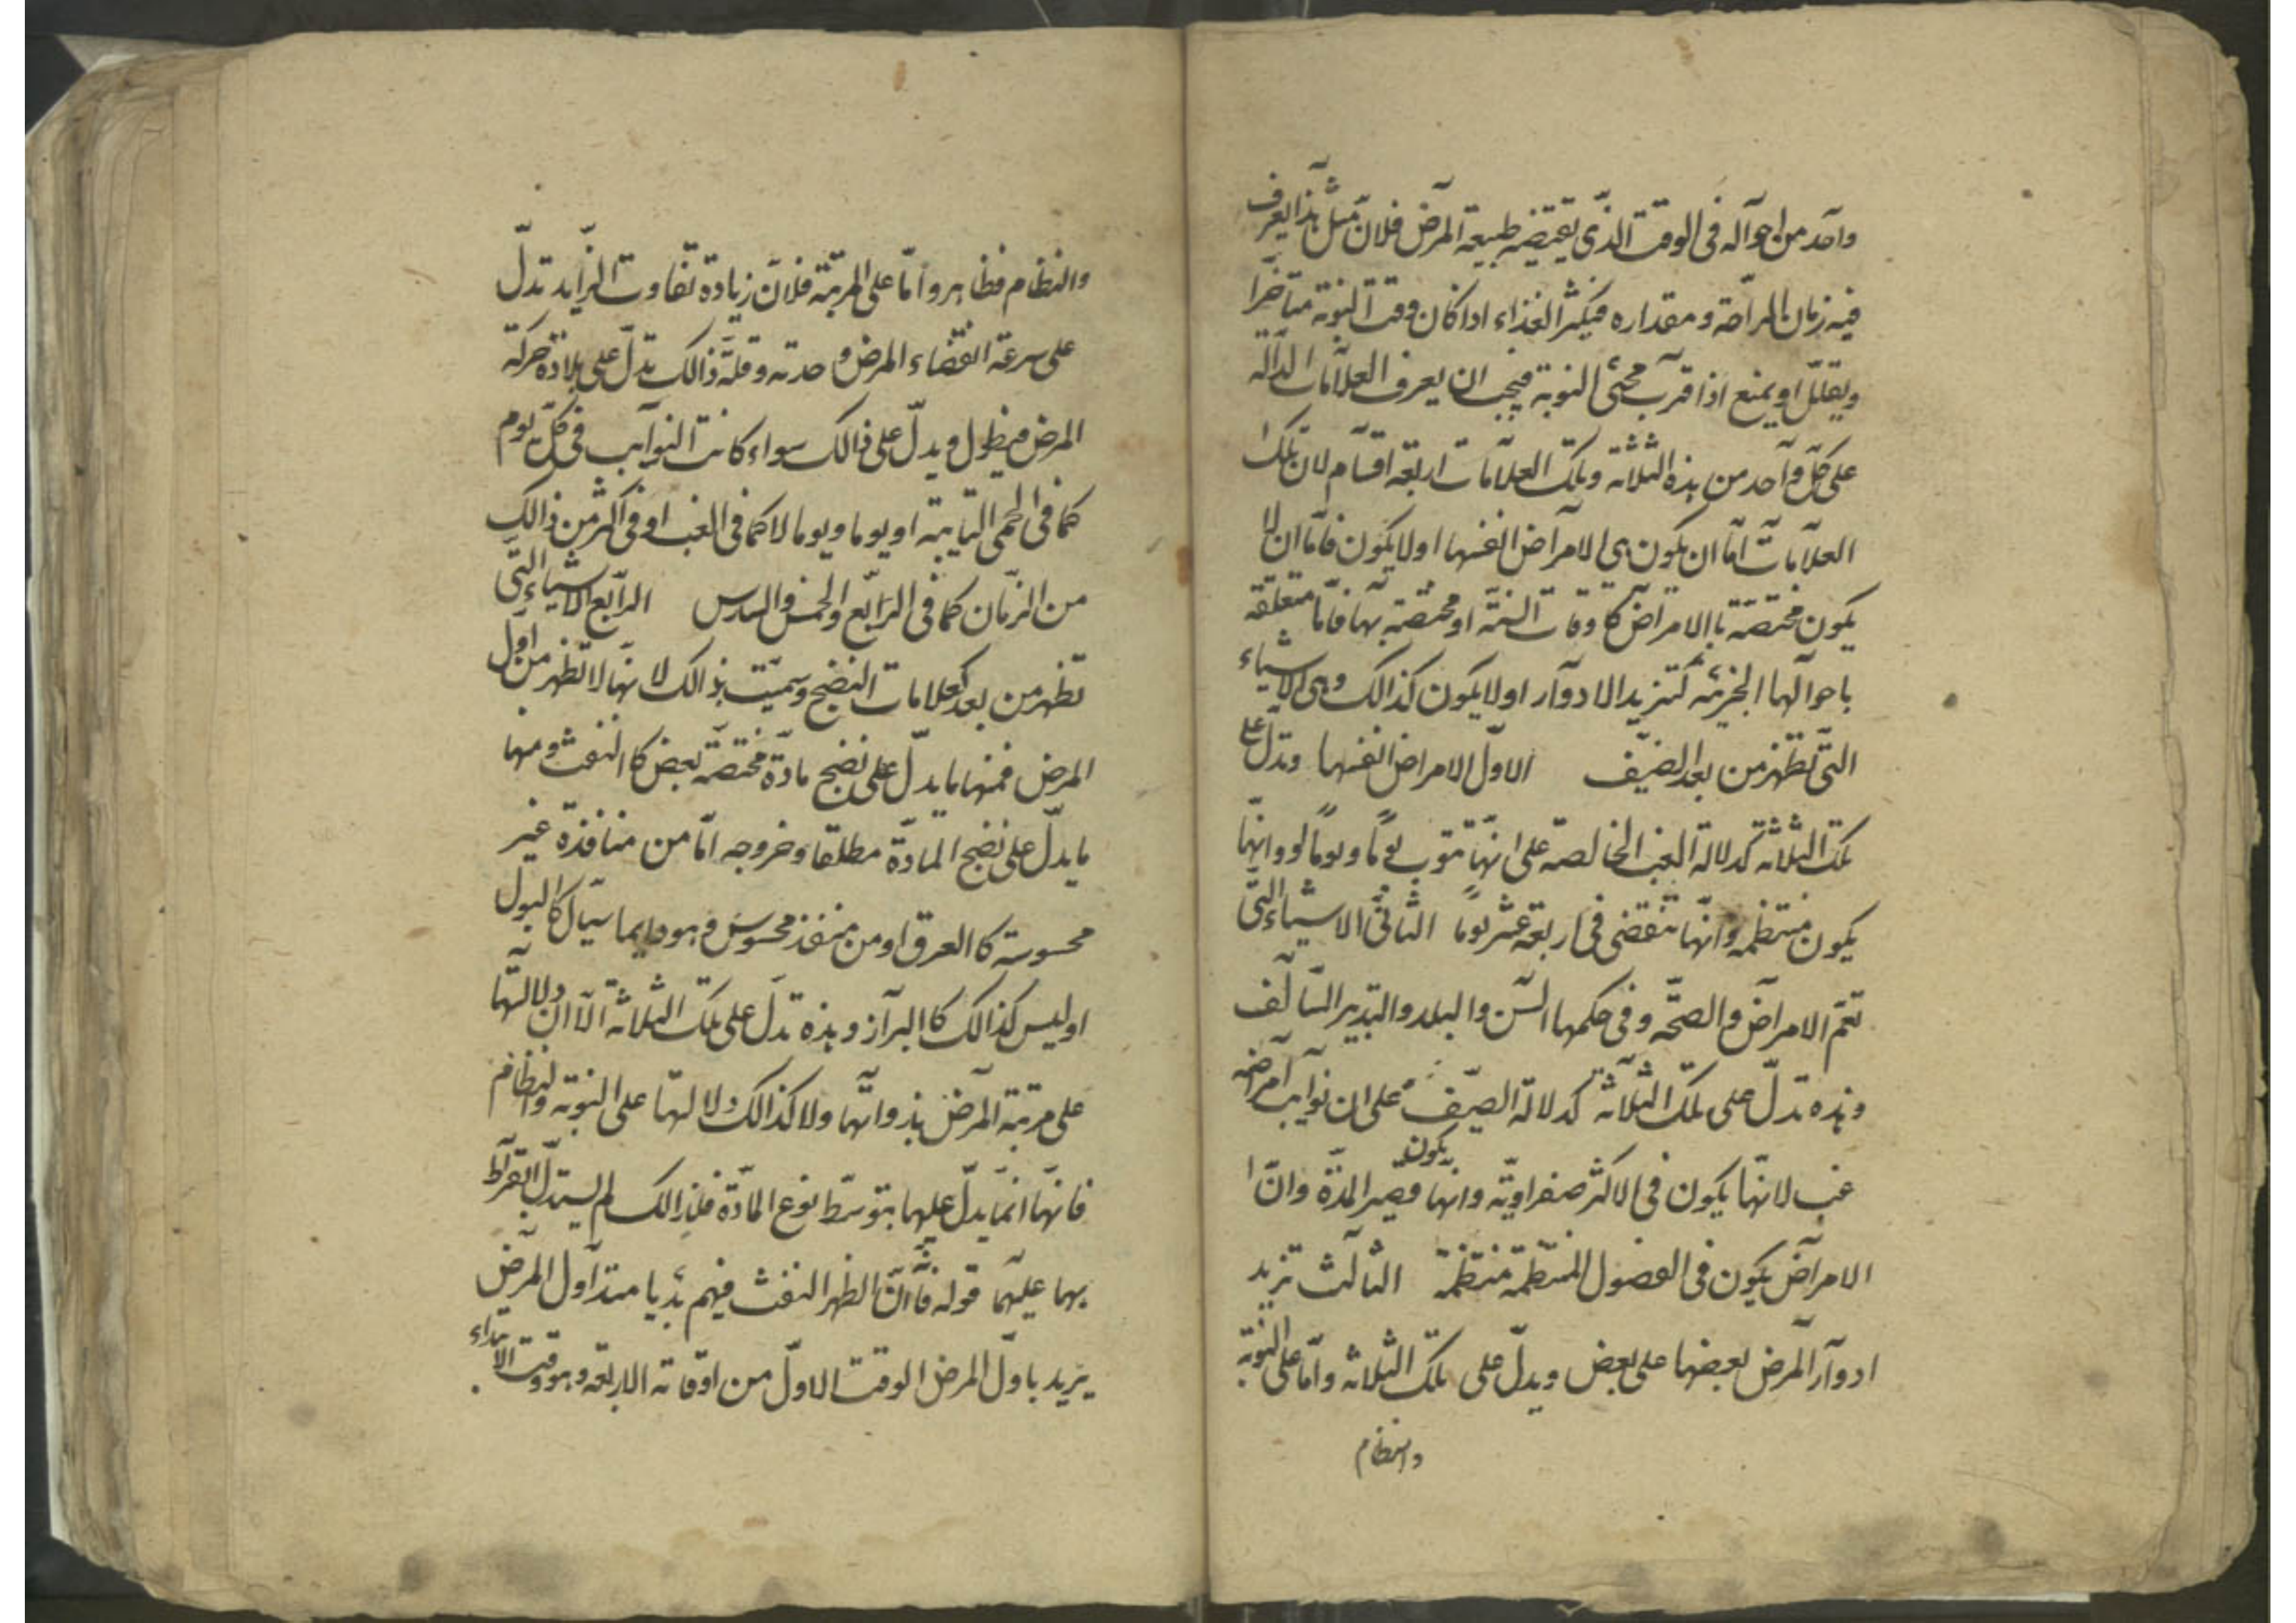 واحد من احواله فى الوقت الذى يقتضيه طبيعة المرض فلان مثل هذا يعرف
فيه زمان الراحة ومقداره فيكثر الغذاء اذا كان وقت النوبة متاخرا
ويقلل او يمنع اذا قرب مجئ النوبة فيجب ان يعرف العلامات الدالة
على كل واحد من هذه الثلاثة وتلك العلامات اربعة اقسام لان تلك
العلامات اما ان يكون هى الامراض انفسها او لا يكون فاما ان لا
يكون مختصة باالامراض كاوقات السنة او مختصة بها فاما متعلقة
باحوالها الجزئية كتزيد الادوار او لا يكون كذالك وهى الاشياء
التى تظهر من بعد الضيف الاول الامراض انفسها وتدل على
تلك الثلاثة كدلالة الغب الخالصة على انها تنوب يوما ويوما لا وانها
يكون منتظمة وانها تنقضى فى اربعة عشر يوما الثانى الاشياء التى
تعم الامراض والصحة وفى حكمها السن والبلد والتدبير السالف
وهذه تدل على تلك الثلاثة كدلالة الصيف على ان نوايب امراضه
غب لانها يكون فى الاكثر صفراوية وانها يكون قصير المدة وان
الامراض يكون فى الفصول المنتظمة منتظمة الثالث تزيد
ادوار المرض بعضها على بعض ويدل على تلك الثلاثة واما على النوبة
والنظام
والنظام فظاهر واما على المرتبة فلان زيادة تفاوت التزايد تدل
على سرعة انقضاء المرض وحدته وقلة ذالك تدل على بلادة حركة
المرض فيطول ويدل على ذالك سواء كانت النوايب فى كل يوم
كما فى الحمى النايبة او يوما ويوما لا كما فى الغب او فى اكثر من ذالك
من الزمان كما فى الرابع والخمس والسدس الرابع الاشياء التى
تظهر من بعد كعلامات النضج وسميت بذالك لانها لا تظهر من اول
المرض فمنها ما يدل على نضج مادة مختصة بعض كا النفث ومنها
ما يدل على نضج المادة مطلقا وخروجه اما من منافذة غير
محسوسة كا العرق او من منفذ محسوس وهو دايما سيال كا البول
او ليس كذالك كا البراز وهذه تدل على تلك الثلاثة الا ان دلالتها
على مرتبة المرض بذواتها ولا كذالك دلالتها على النوبة والنظام
فانها انما يدل عليهما بتوسط نوع المادة فلذالك لم يستدل بقراط
بهما عليهما قوله فاان اظهر النفث فيهم بديا منذ اول المرض
يريد باول المرض الوقت الاول من اوقاته الاربعة وهو وقت الابتداء